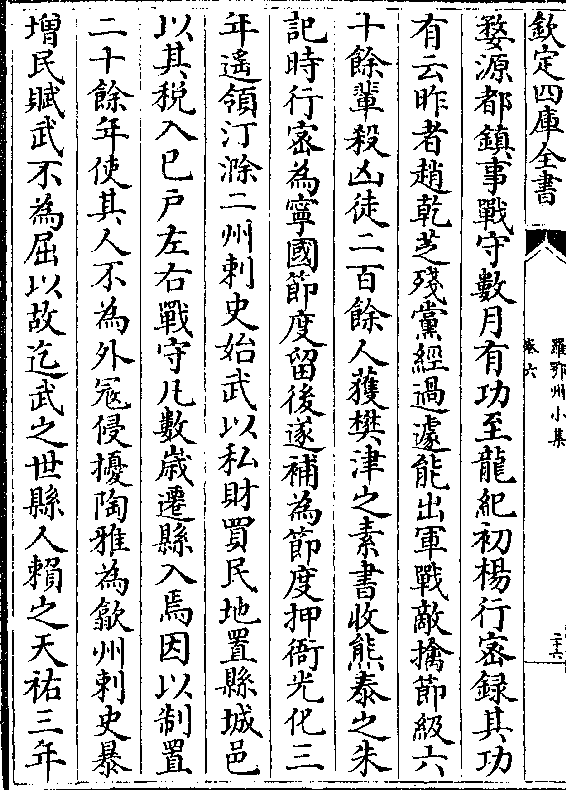 欽定四庫全書
羅鄂州小集
卷六
二十六
婺源都鎮事戰守數月有功至龍紀初楊行宻録其功
有云昨者趙乾芝殘黨經過遽能出軍戰敵擒節級六
十餘輩殺凶徒二百餘人獲樊津之素書收熊泰之朱
記時行宻為寧國節度留後遂補為節度押衙光化三
年遙領汀滁二州刺史始武以私財買民地置縣城邑
以其税入已戸左右戰守凡數歳遷縣入焉因以制置
二十餘年使其人不為外冦侵擾陶雅為歙州刺史暴
增民賦武不為屈以故迄武之世縣人賴之天祐三年